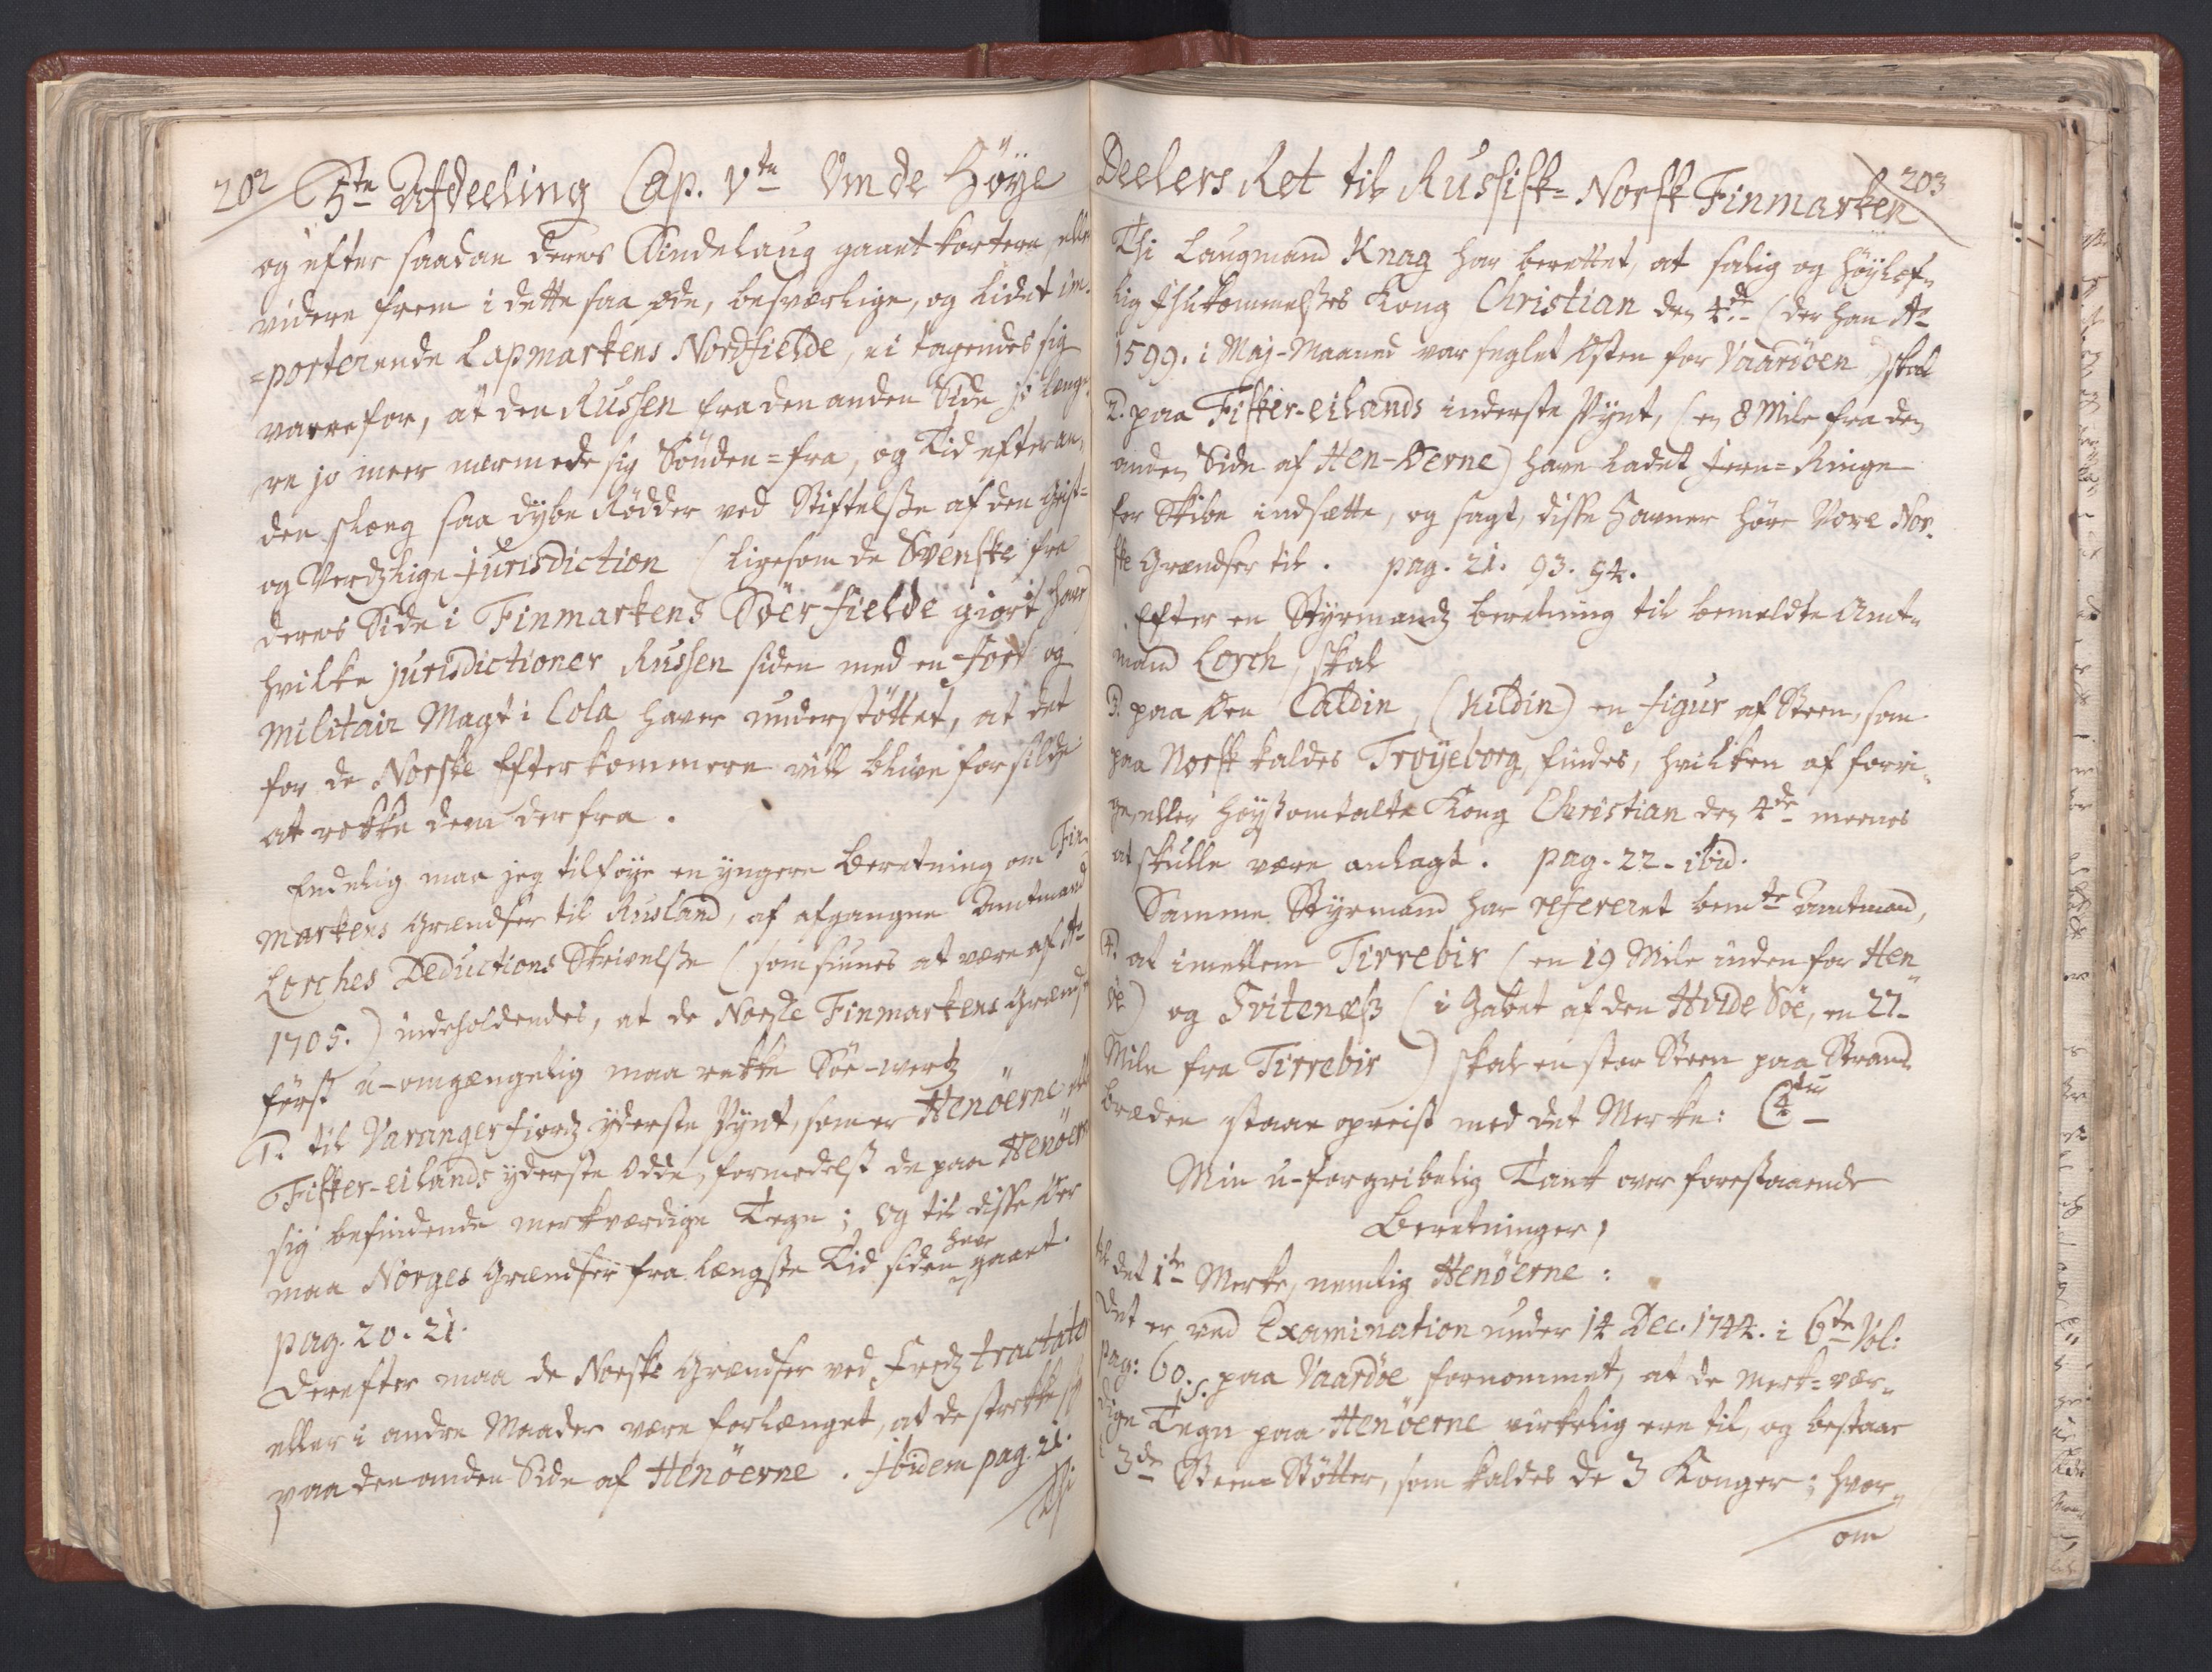 202 5te Afdeeling Cap. Vte Om de Höye
og efter saadan deres Sindelaug gaaet kortere eller
videre frem i dette saa øde, besværlige, og lidet im-
=porterende Lapmarkens Nordfielde, ei tagendes sig
vare for, at den Russen fra den anden Side jo læng-
re jo meer nærmede sig Sönden=fra, og Tid efter an-
den slaeg saa dybe Rödder ved Stiftelse af den Geist=
og Verdzlige jurisdiction (ligesom de Svenske fra
deres Side i Finmarkens Söerfielde giort haver
hvilke jurisdictioner Russen siden med en Fort og
Militair Magt i Cola haver understöttet, at det
for de Norske Efterkommere vill blive for silde
at rokke dem derfra.
Endelig maa jeg tilföye en yngere Beretning om Fin-
markens Grændser til Rusland, af afgangne Amtmand
Lorches Deductions Skrivelse (som siunes at være af Ao
1705.) indeholdendes, at de Norske Finmarkens Grændser
först u-omgængelig maa rekke Söe-werts
1. til Varangerfiords yderste Pynt, som er Henöerne eller
Fisker-eilands yderste Odde, formedelst de paa Henöerne
sig befindende merkværdige Tegn; og til disse Öer
maa Norges Grændser fra længste Tid siden have gaaet.
pag. 20. 21.
Derefter maa de Norske Grændser ved Fredz tractater
eller i andre Maader være forlænget, at de strekke sig
paa den anden Side af Henöerne. Ibidem pag. 21.
Thi
Deelers Ret til Russisk=Norsk Finmarken 203
Thi Laugmand Knag har berettet, at salig og Höylof-
lig Ihukommelses Kong Christian den 4de (der han Ao
1599. i Maj-Maaned var seglet Östen for Vaardöen) skal
2. paa Fisker-eilands inderste Pynt, (en 8 Mile fra den
anden Side af Hen-Öerne) have ladet Jern=Ringe
for Skibe indsætte, og sagt, disse Havner höre Vore Nor-
ske Grændser til. pag. 21. 93. 94.
Efter en Styrmands beretning til bemeldte Amt-
mand Lorch, skal
3. paa Öen Caldin, (Kildin) en figur af Steen, som
paa Norsk kaldes Tröyeborg, findes, hvilken af forri-
ge, eller höystomtalte Kong Christian den 4de meenes
at skulle være anlagt. pag. 22. ibid.
Samme Styrmand har refereret bemte Amtmand,
4. at imellem Tirrebir (en 19 Mile inden for Hen-
öe) og Svitenæs (i Gabet af den Hvide Söe, en 27-
Mile fra Tirrebir) skal en stor Steen paa Strand-
bræden staae opreist med det Merke: C4tus
Min u-forgribelig Tank over forestaaende
Beretninger,
til det 1te Merke, nemlig Henöerne:
Det er ved Examination under 14 Dec. 1744. i 6te Vol:
pag: 60. s. paa Vaardöe fornommet, at de Merk=vær-
dige Tegn paa Henöerne virkelig ere til, og bestaar
i 3de Steen=Stötter, som kaldes de 3 Konger; hvor-
om